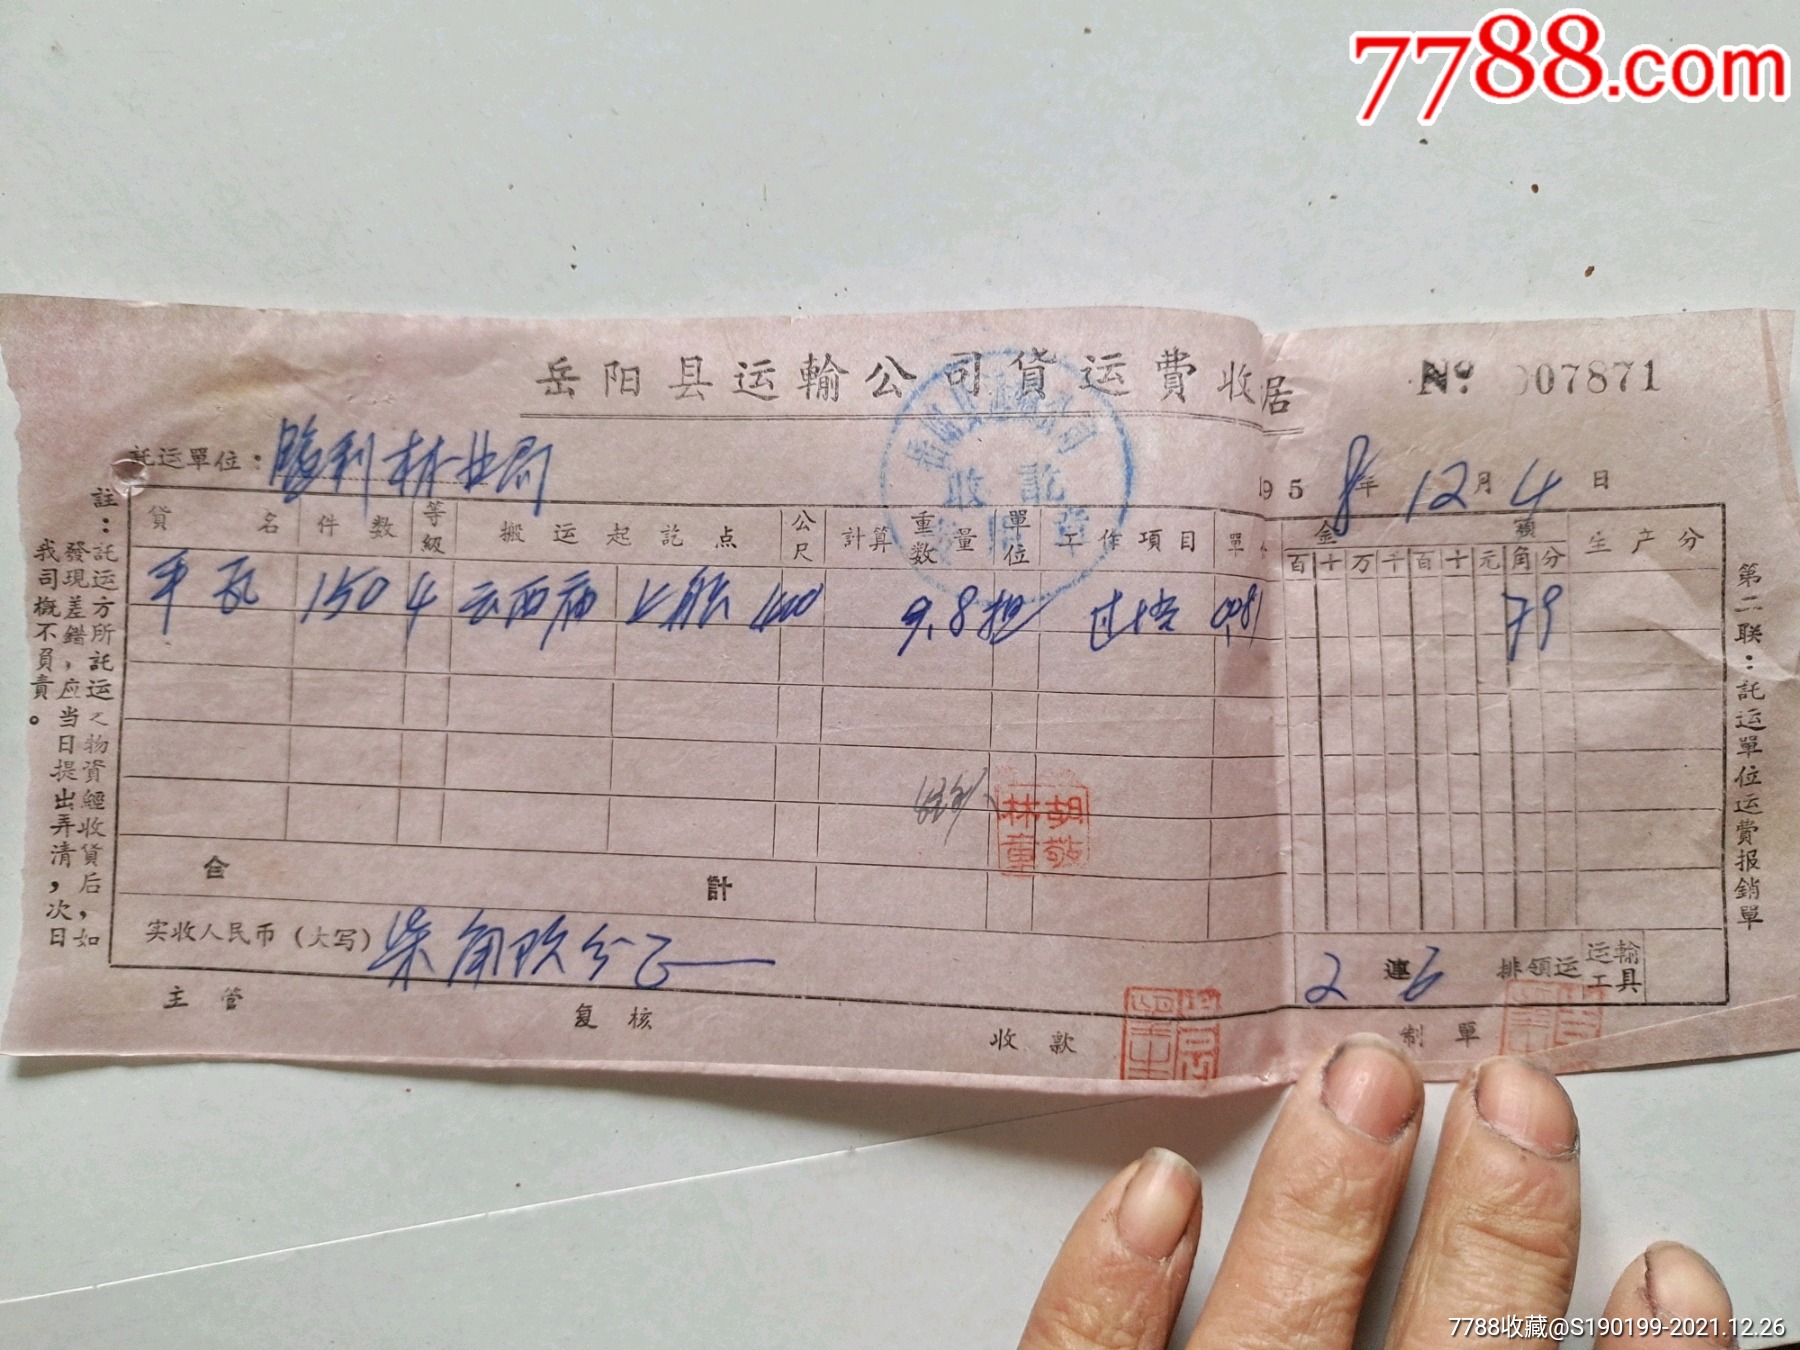 7788.com
岳阳县运輸公司貨运費收居
№ 007871
託运單位：勝利林业局
1958年12月4日
貨名 件数 等級 搬运起訖点 公尺 計算重量数 單位 工作項目 單 金額 生产分
百十万千百十元角分
平瓦 150 4 上船 400 9.8 担 0.081 79
胡敬林章
合計
实收人民币（大写）柒角玖分正
2 連 6 排領运 运輸工具
主管 复核 收款 制單
註：託运方所託运之物資經收貨后，如
發現差錯，应当日提出弄清，次日
我司概不負責。
第二联：託运單位运費报銷單
7788收藏@S190199-2021.12.26